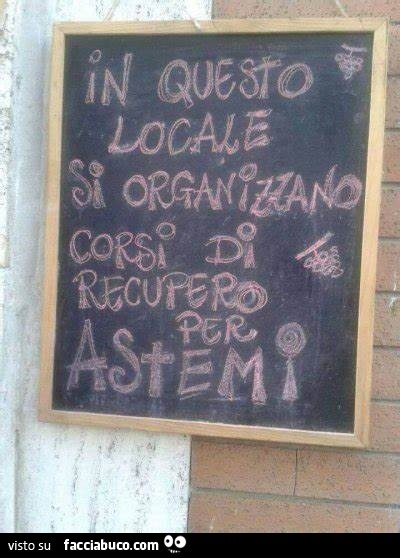 in QUESTO
LOCALE
Si ORGANiZZANO
CORSi Di
RECUPERO
PER
ASTEMi
visto su facciabuco.com